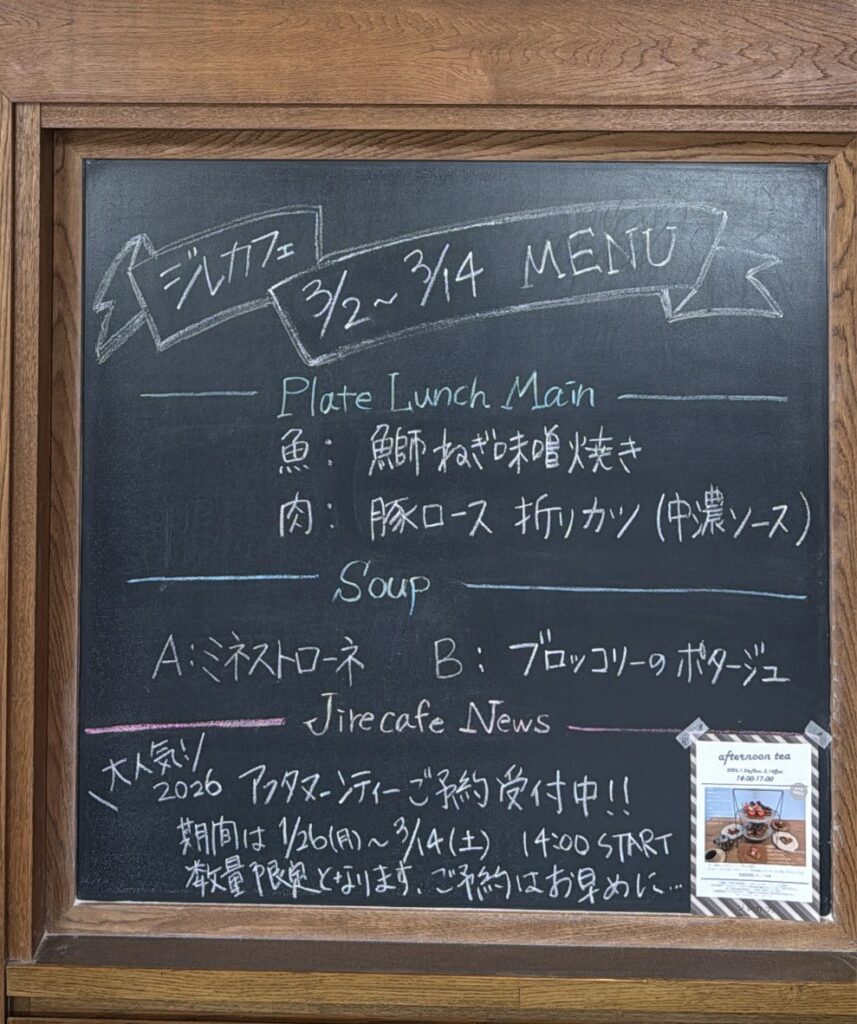 ジルカフェ 3/2～3/14 MENU
Plate Lunch Main
魚： 鰤ねぎ味噌焼き
肉： 豚ロース 折りカツ (中濃ソース)
Soup
A：ミネストローネ B： ブロッコリーのポタージュ
Jirecafe News
大人気!!
2026 アフタヌーンティーご予約受付中!!
期間は 1/26(月)～3/14(土) 14:00 START
数量限定となります。ご予約はお早めに…
afternoon tea
14:00-17:00